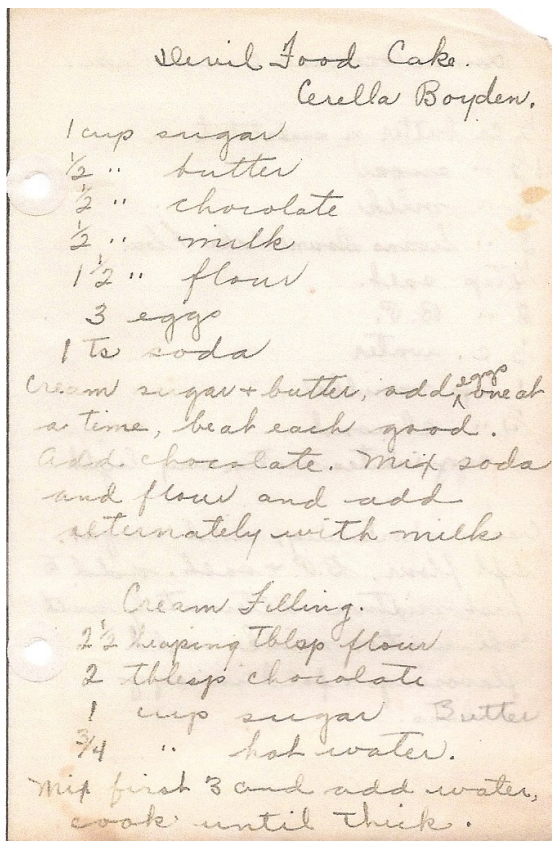 Devil Food Cake.
Cerella Boyden.
1 cup sugar
1/2 " butter
1/2 " chocolate
1/2 " milk
1 1/2 " flour
3 eggs
1 ts soda
Cream sugar + butter, add eggs one at
a time, beat each good.
Add chocolate. Mix soda
and flour and add
alternately with milk
Cream Filling.
2 1/2 heaping tblsp flour
2 tblesp chocolate
1 cup sugar Butter
3/4 " hot water.
Mix first 3 and add water,
cook until thick.